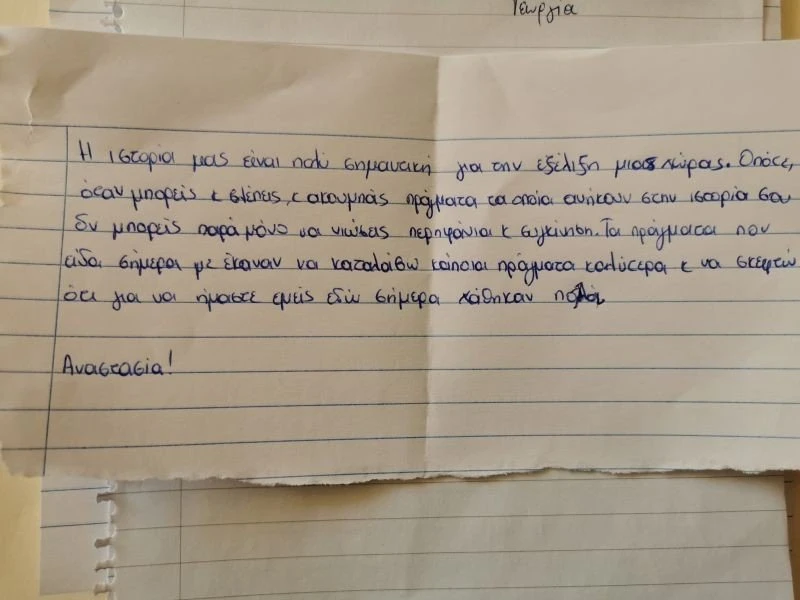 Γεωργία
Η ιστορία μας είναι πολύ σημαντική για την εξέλιξη μιας χώρας. Οπότε,
όταν μπορείς κ βλέπεις, κ ακουμπάς πράγματα τα οποία ανήκουν στην ιστορία σου
δν μπορείς παρά μόνο να νιώσεις περηφάνια κ συγκίνηση. Τα πράγματα που
είδα σήμερα με έκαναν να καταλάβω κάποια πράγματα καλύτερα κ να σκεφτώ
ότι για να ήμαστε εμείς εδώ σήμερα χάθηκαν πολλοί
Αναστασία!